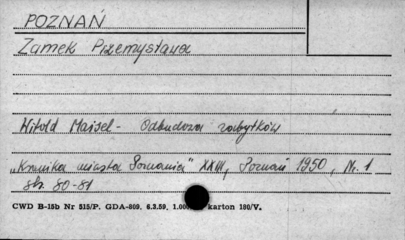 POZNAŃ
Zamek Przemysława
Witold Maisel - Odbudowa zabytków
„Kronika miasta Poznania" XXIII, Poznań 1950, Nr. 1
str. 80-81
CWD B-15b Nr 515/P. GDA-869. 6.3.59. 1.00 karton 180/V.